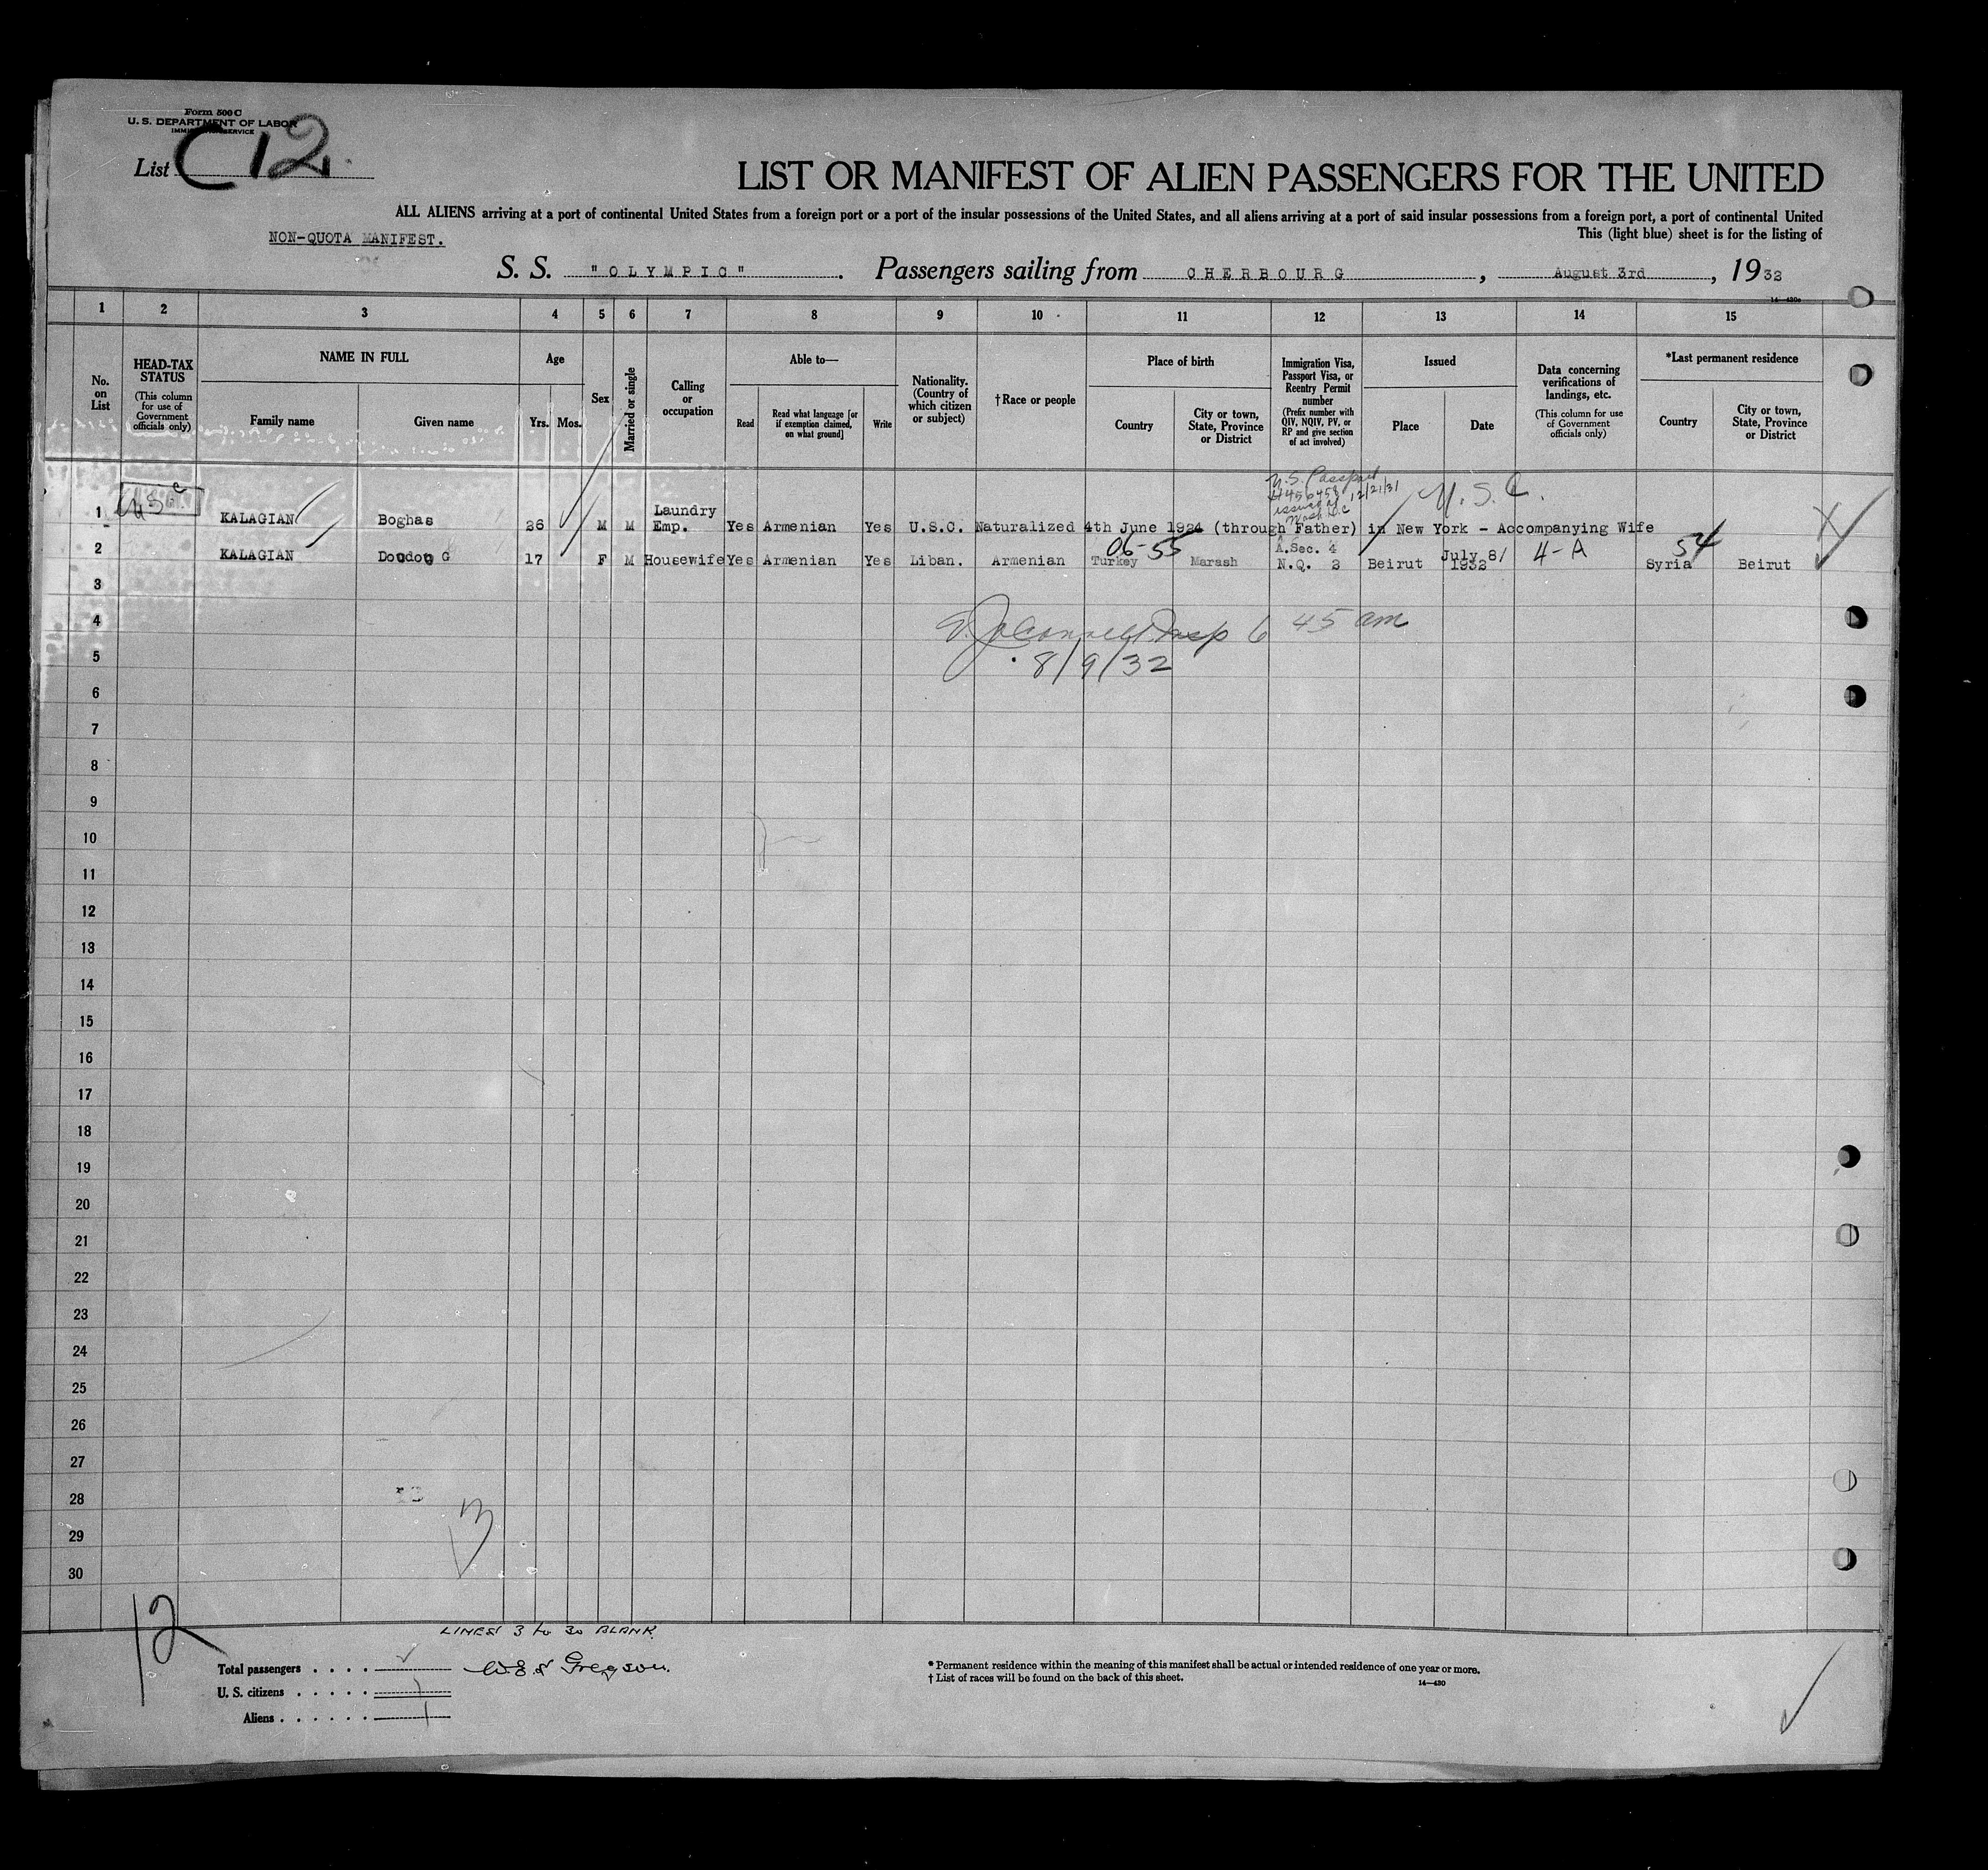 Form 500 C
U. S. DEPARTMENT OF LABOR
IMMIGRATION SERVICE
List C 12
LIST OR MANIFEST OF ALIEN PASSENGERS FOR THE UNITED
ALL ALIENS arriving at a port of continental United States from a foreign port or a port of the insular possessions of the United States, and all aliens arriving at a port of said insular possessions from a foreign port, a port of continental United
This (light blue) sheet is for the listing of
NON-QUOTA MANIFEST.
S. S. "OLYMPIC". Passengers sailing from CHERBOURG, August 3rd, 1932
1 2 3 4 5 6 7 8 9 10 11 12 13 14 15
No. on List
HEAD-TAX STATUS
(This column for use of Government officials only)
NAME IN FULL
Family name
Given name
Age
Yrs. Mos.
Sex
Married or single
Calling or occupation
Able to—
Read
Read what language [or if exemption claimed, on what ground]
Write
Nationality. (Country of which citizen or subject)
†Race or people
Place of birth
Country
City or town, State, Province or District
Immigration Visa, Passport Visa, or Reentry Permit number
(Prefix number with QIV, NQIV, PV, or RP and give section of act involved)
Issued
Place
Date
Data concerning verifications of landings, etc.
(This column for use of Government officials only)
*Last permanent residence
Country
City or town, State, Province or District
U.S. Passport
issued 12/21/31
Wash DC
U.S.C.
1 USC KALAGIAN Boghas 26 M M Laundry Emp. Yes Armenian Yes U.S.C. Naturalized 4th June 1924 (through Father) in New York - Accompanying Wife
06-55
54
2 KALAGIAN Doudou G 17 F M Housewife Yes Armenian Yes Liban. Armenian Turkey Marash A.Sec. 4 N.Q. 2 Beirut July 8/ 1932 4-A Syria Beirut
3
4
Insp 6 45 am
5
8/9/32
6
7
8
9
10
11
12
13
14
15
16
17
18
19
20
21
22
23
24
25
26
27
28
29
30
12
LINES 3 to 30 BLANK.
Total passengers . . . .
Gregson.
U. S. citizens . . . . . 1
Aliens . . . . . . 1
* Permanent residence within the meaning of this manifest shall be actual or intended residence of one year or more.
† List of races will be found on the back of this sheet.
14—430